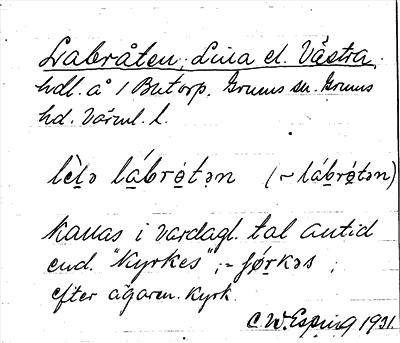 Labråten, Lilla el. Västra,
hdl. å 1 Butorp. Grums sn. Grums
hd. Värml. l.
lɩ̀lə lábrøtən (~ lábrøtən)
kallas i vardagl. tal alltid
end. "Kyrkes" :- ɟørkəs ;
efter ägaren. Kyrk.
C.W. Esping 1931.